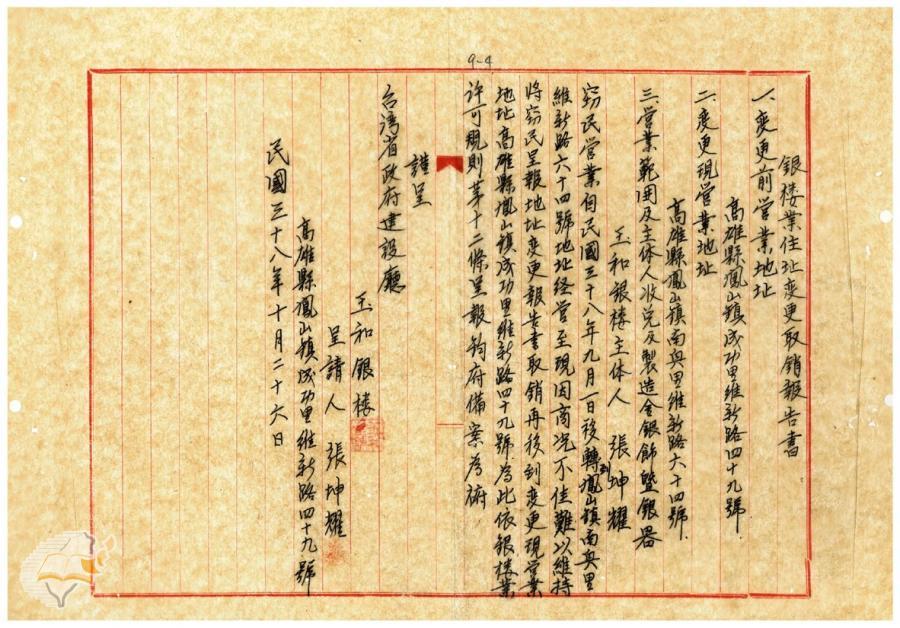 9-4
銀楼業住址变更取销報告書
一、変更前营業地址
高雄縣鳳山鎮成功里維新路四十九號
二、変更現营業地址
高雄縣鳳山鎮南興里維新路六十四號
三、营業範囲及主体人收兑及製造金銀飾曁銀器
玉和銀楼主体人 張坤耀
窃民营業自民國三十八年九月一日移轉到鳳山鎮南興里
維新路六十四號地址経营至現因商况不佳難以維持
将窃民呈報地址変更報告書取销再移到変更現营業
地址高雄縣鳳山鎮成功里維新路四十九號為此依銀楼業
许可規則第十二條呈報钧府備案為祷
謹呈
台湾省政府建設廳
玉和銀楼
呈請人 張坤耀
高雄縣鳳山鎮成功里維新路四十九號
民國三十八年十月二十六日